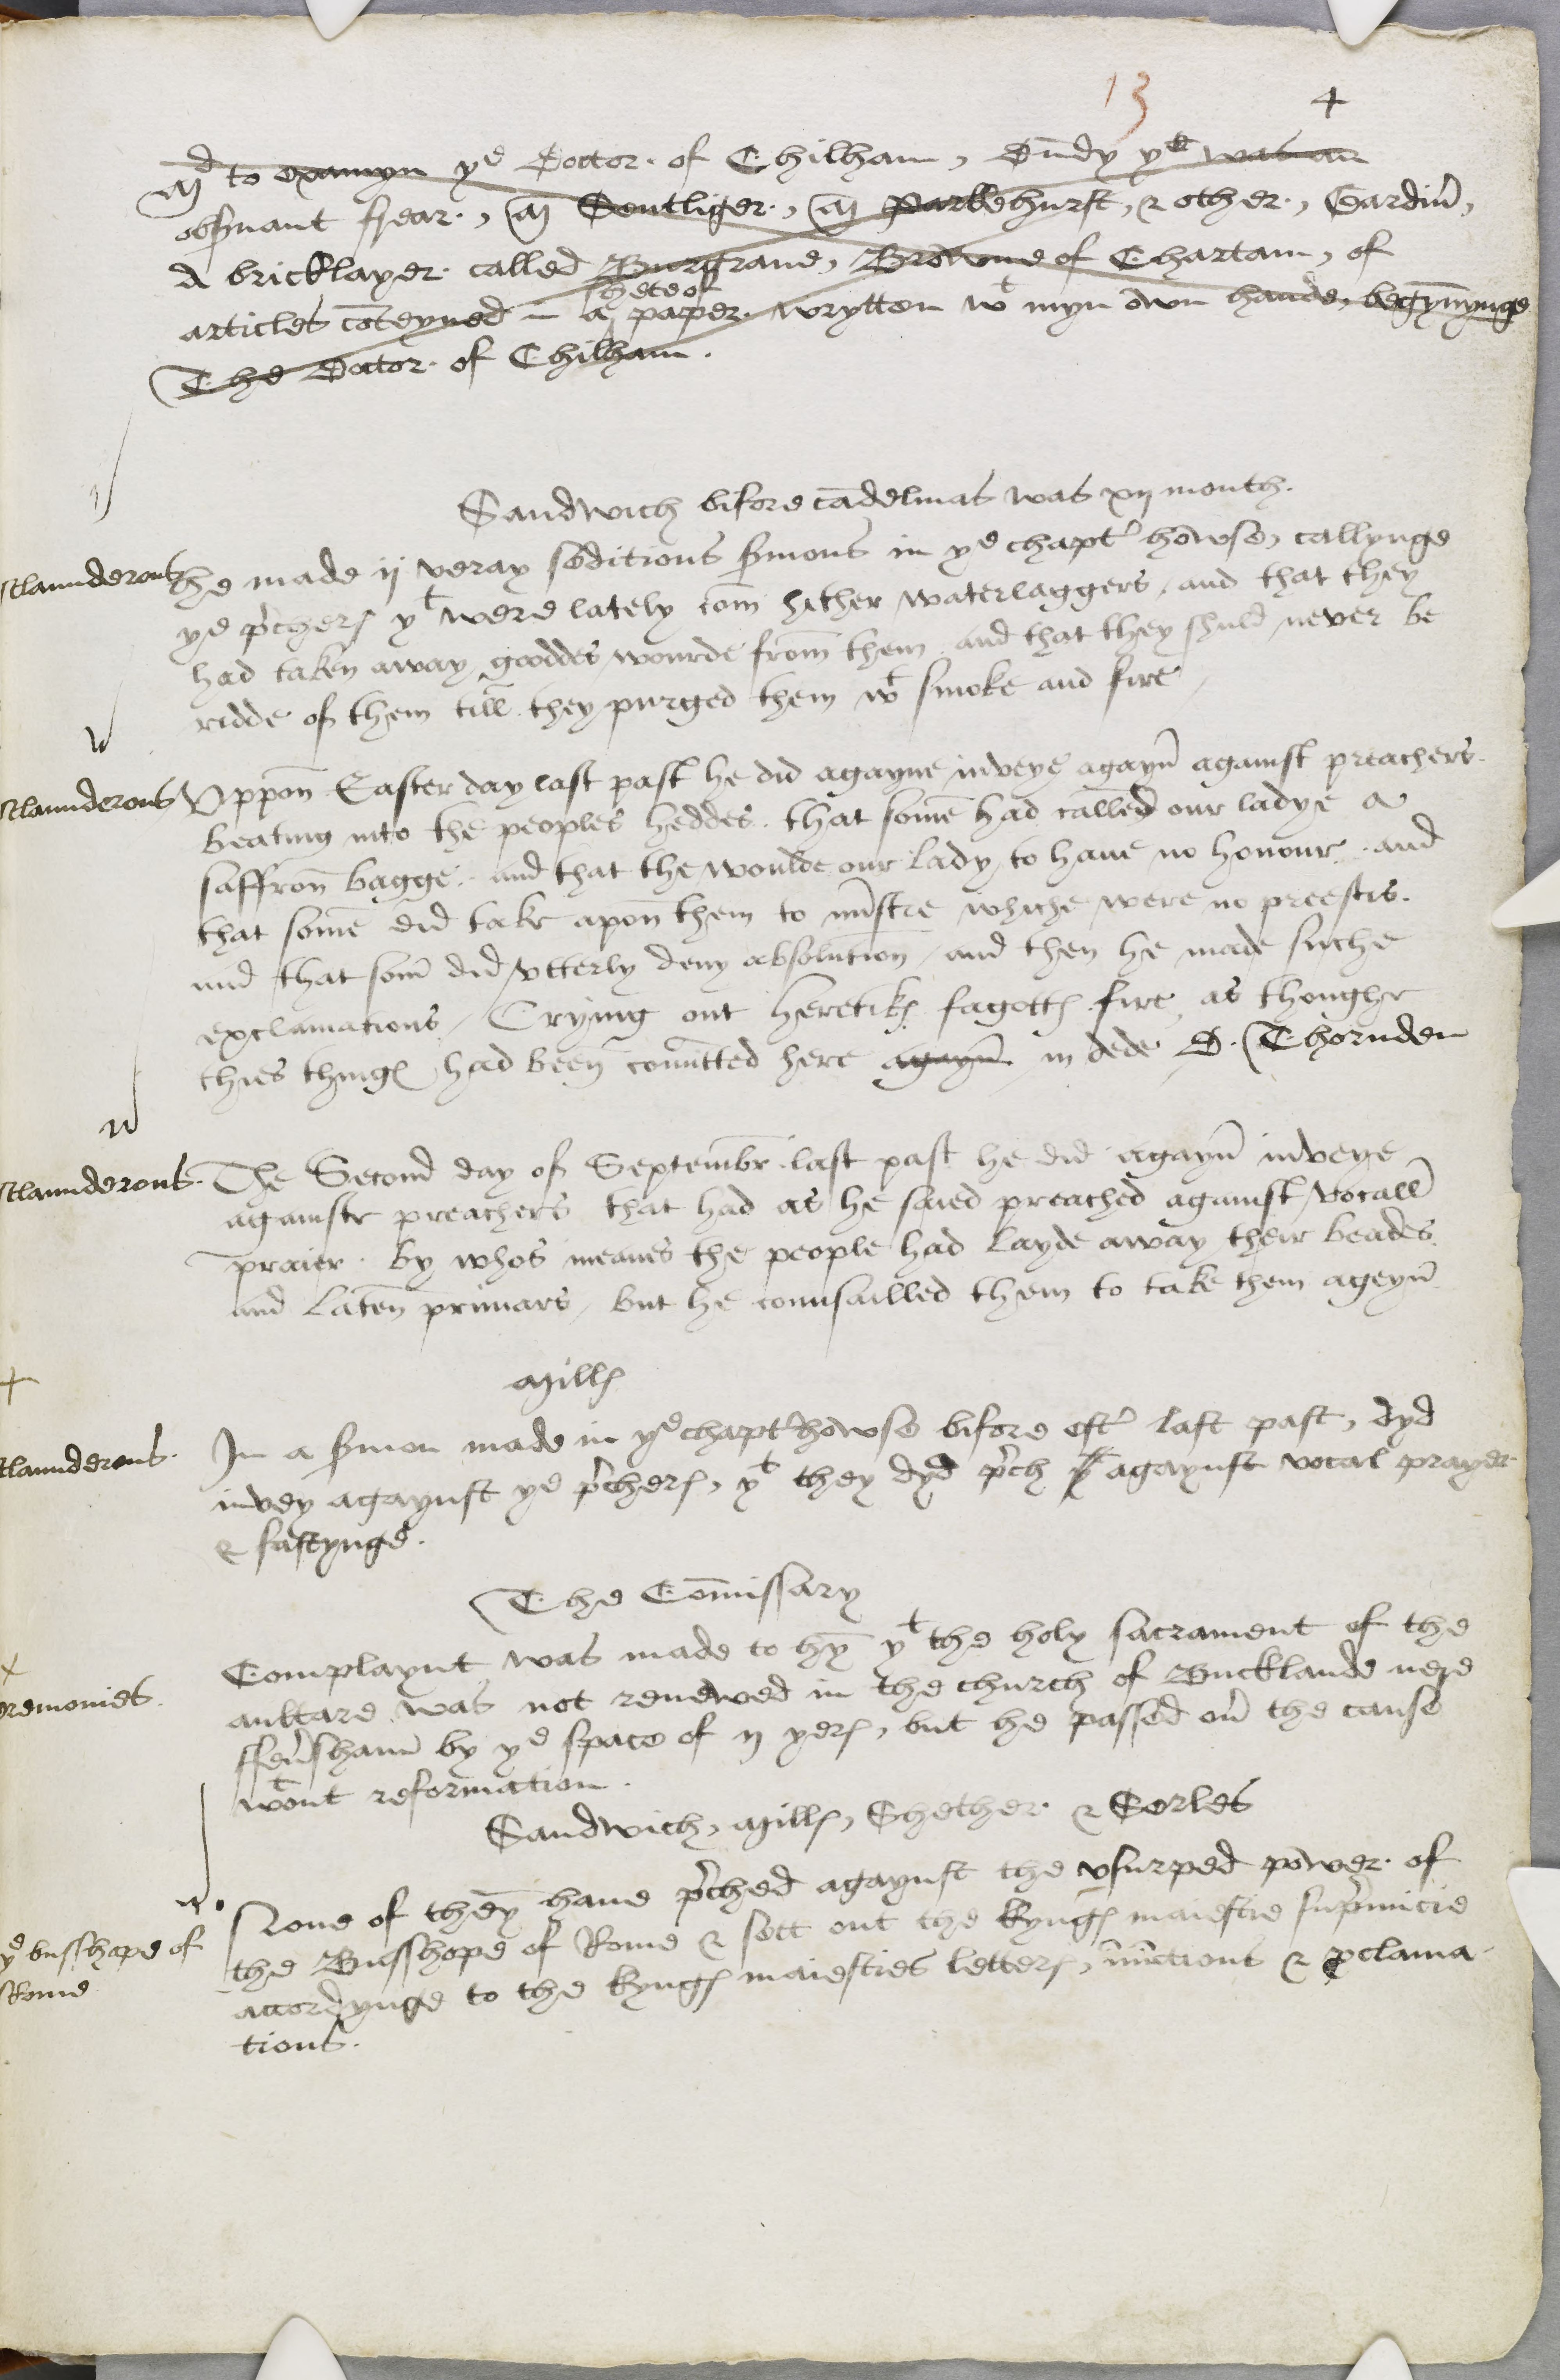 13
+
Md to examyn ye Doctor of Chilham, Bu̅dy yt was an
obs̃uant frear, M Sentliger, M Parkehurst, & other, Gardiñ,
A bricklayer called Burgrave, Browne of Chartam, of
shete of
articles co̅teyned in a paper wrytten wt myn own hande, begyn̅ynge
The Doctor of Chilham.
Sandwich bifore ca̅delmas was xij month.
sclaunderous
he made ij veray seditious s̃mons in ye chaptr howse, callynge
ye p̃chers yt were lately com̅ hither waterlaggers, and that they
had taken away goddes wourde from̅ them and that they shuld never be
ridde of them till they purged them wt smoke and fire
sclaunderous
Vppon̅ Easter day last past he did agayne inveye agayn̅ against preachers
beating into the peoples heddes that some̅ had called our ladye a
saffron̅ bagge. and that the woulde our lady to have no honour. and
that some̅ did take apon̅ them to mi̅stre whiche were no preestis.
and that som̅ did vtterly deny absolution̅, and then he made suche
exclamations, Crying out heretikes fagottes fire, as thoughe
thies thinges had been̅ com̅itted here agayn̅ in dede D. Thornden
sclaunderous.
The Second day of Septembr last past he did agayn̅ inveye
againste preachers that had as he saied preached against vocall
praier. by whos meanes the people had layde away their beades
and laten̅ primars, but he counsailled them to take them ageyn̅
+
Mills
sclaunderous.
In a s̃mon made in ye chaptr howse bifore estr last past, dyd
invey agaynst ye p̃chers, yt they dyd p̃ch y agaynst vocal prayer
& fastynge.
The Com̅issary
+
ceremonies.
Complaynt was made to hy̅ yt the holy sacrament of the
aultare was not renewed in the church of Bucklande nere
ffev̅sham̅ by ye space of ij yers, but he passed ov̅ the cause
wtout reformation.
Sandwich, Mills, Shether & Serles
ye busshope of
Rome
None of they̅ haue p̃ched agaynst the vsurped power of
the Busshope of Rome & sett out the kyngs maiestie sup̃micie
accordynge to the kyngs maiesties letters, iniu̅ctions & p̱clama-
tions.